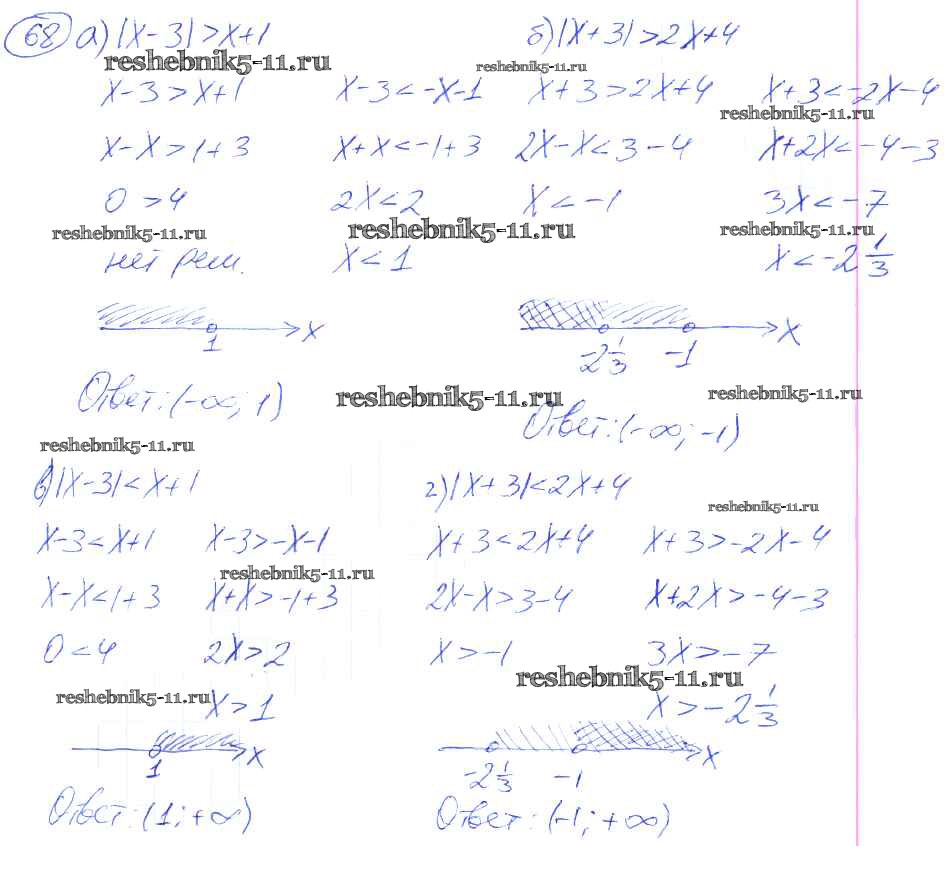 68 а) |x-3|>x+1 б) |x+3|>2x+4
reshebnik5-11.ru reshebnik5-11.ru
x-3>x+1 x-3<-x-1 x+3>2x+4 x+3<-2x-4
reshebnik5-11.ru
x-x>1+3 x+x<-1+3 2x-x<3-4 x+2x<-4-3
0>4 2x<2 x<-1 3x<-7
reshebnik5-11.ru reshebnik5-11.ru reshebnik5-11.ru
нет реш. x<1 x<-2 1/3
x x
1 -2 1/3 -1
Ответ: (-∞; 1) reshebnik5-11.ru reshebnik5-11.ru
Ответ: (-∞; -1)
reshebnik5-11.ru
в) |x-3|<x+1 г) |x+3|<2x+4
reshebnik5-11.ru
x-3<x+1 x-3>-x-1 x+3<2x+4 x+3>-2x-4
reshebnik5-11.ru
x-x<1+3 x+x>-1+3 2x-x>3-4 x+2x>-4-3
0<4 2x>2 x>-1 3x>-7
reshebnik5-11.ru reshebnik5-11.ru
x>1 x>-2 1/3
x x
1 -2 1/3 -1
Ответ: (1; +∞) Ответ: (-1; +∞)